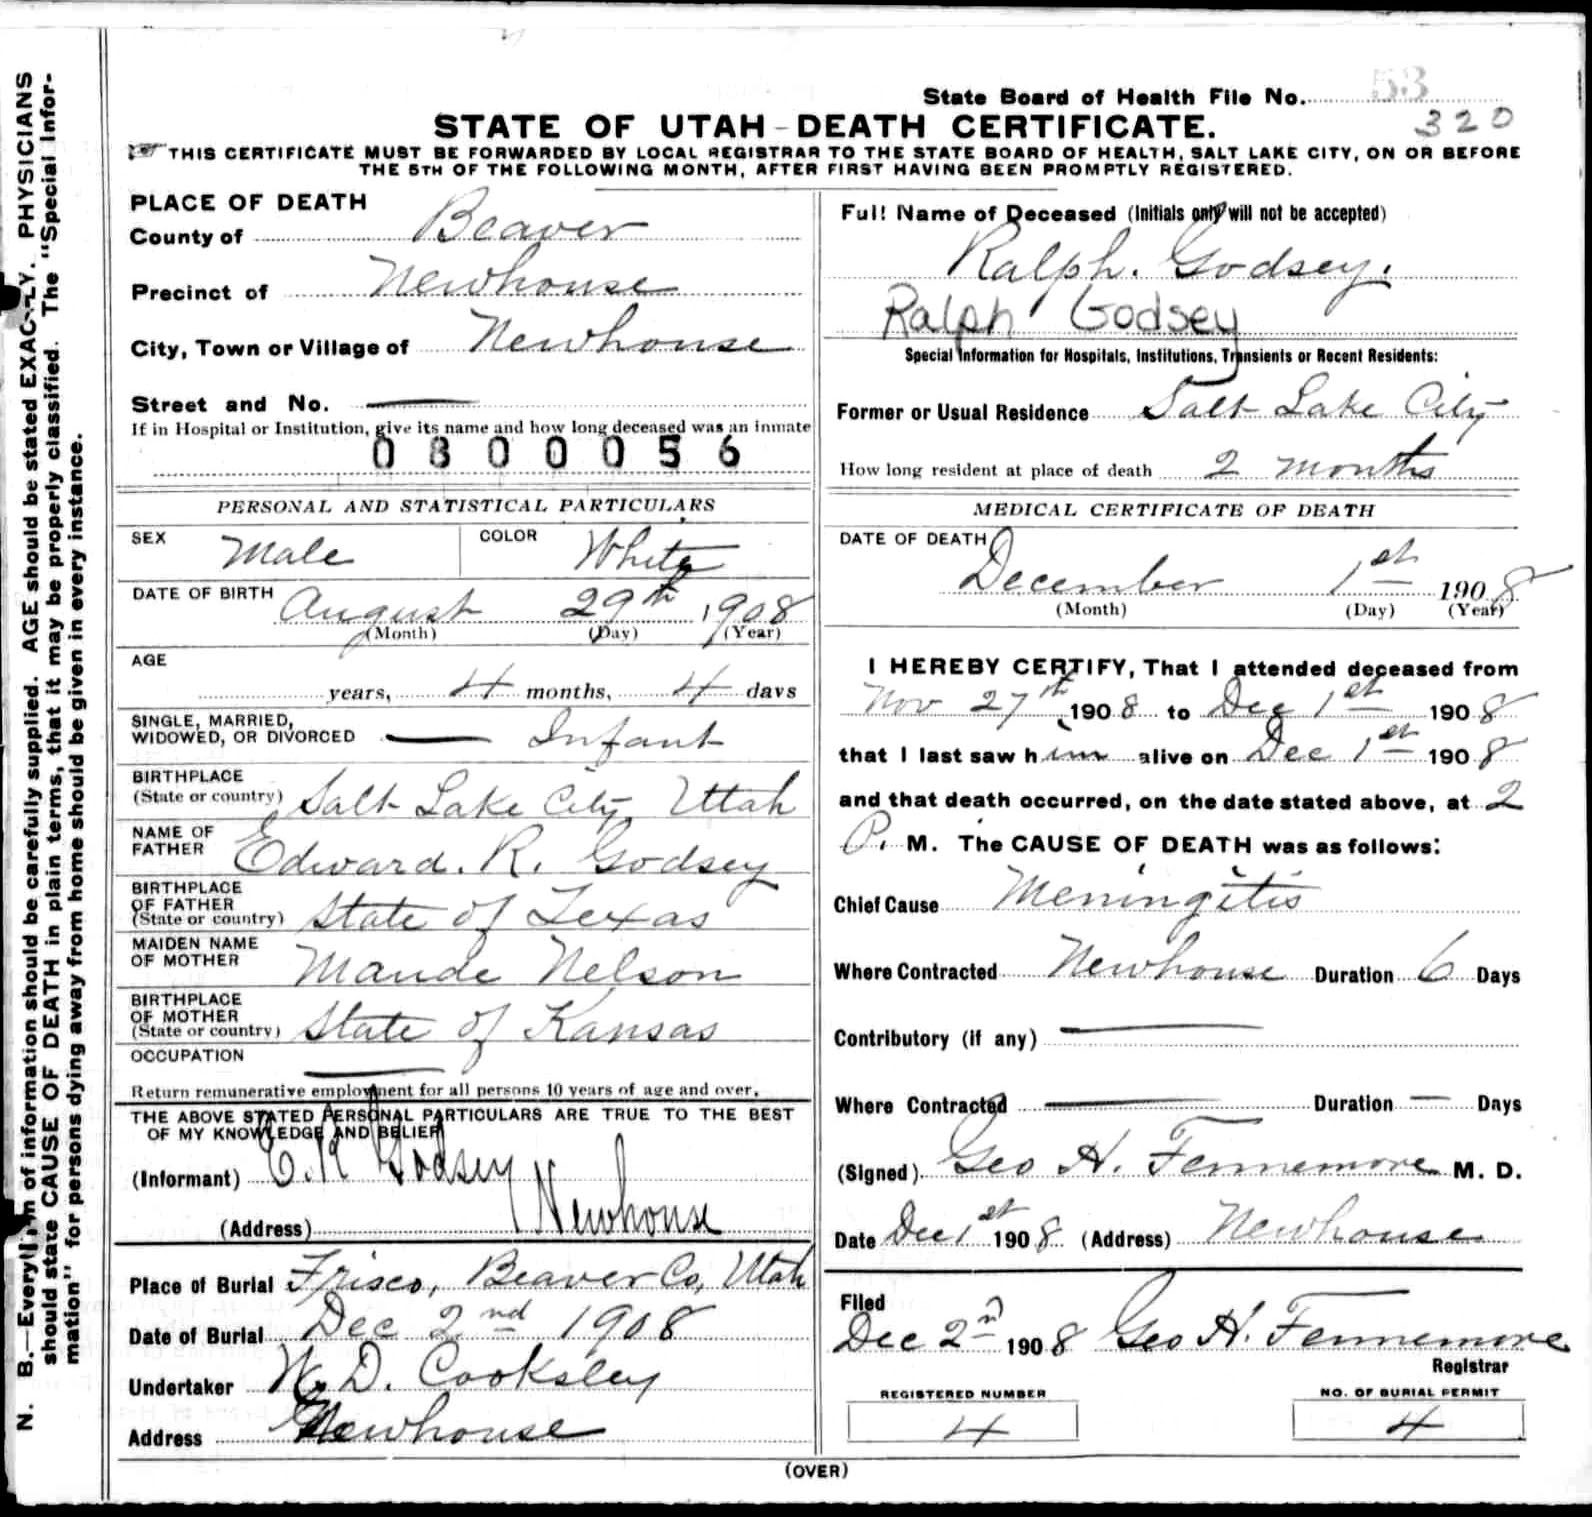 State Board of Health File No. 53
320
STATE OF UTAH - DEATH CERTIFICATE.
THIS CERTIFICATE MUST BE FORWARDED BY LOCAL REGISTRAR TO THE STATE BOARD OF HEALTH, SALT LAKE CITY, ON OR BEFORE
THE 5TH OF THE FOLLOWING MONTH, AFTER FIRST HAVING BEEN PROMPTLY REGISTERED.
PLACE OF DEATH
County of Beaver
Precinct of Newhouse
City, Town or Village of Newhouse
Street and No. —
If in Hospital or Institution, give its name and how long deceased was an inmate
0800056
PERSONAL AND STATISTICAL PARTICULARS
SEX Male COLOR White
DATE OF BIRTH August 29th 1908
(Month) (Day) (Year)
AGE
years, 4 months, 4 days
SINGLE, MARRIED,
WIDOWED, OR DIVORCED — Infant
BIRTHPLACE
(State or country) Salt Lake City, Uttah
NAME OF
FATHER Edward. R. Godsey
BIRTHPLACE
OF FATHER
(State or country) State of Texas
MAIDEN NAME
OF MOTHER Maude Nelson
BIRTHPLACE
OF MOTHER
(State or country) State of Kansas
OCCUPATION —
Return remunerative employment for all persons 10 years of age and over.
THE ABOVE STATED PERSONAL PARTICULARS ARE TRUE TO THE BEST
OF MY KNOWLEDGE AND BELIEF
(Informant) E. R Godsey
(Address) Newhouse
Place of Burial Frisco, Beaver Co, Utah
Date of Burial Dec 2nd 1908
Undertaker W. D. Cooksley
Address Newhouse
Full Name of Deceased (Initials only will not be accepted)
Ralph. Godsey.
Ralph Godsey
Special Information for Hospitals, Institutions, Transients or Recent Residents:
Former or Usual Residence Salt Lake City
How long resident at place of death 2 months
MEDICAL CERTIFICATE OF DEATH
DATE OF DEATH
December 1st 1908
(Month) (Day) (Year)
I HEREBY CERTIFY, That I attended deceased from
Nov 27th 1908 to Dec 1st 1908
that I last saw him alive on Dec 1st 1908
and that death occurred, on the date stated above, at 2
P. M. The CAUSE OF DEATH was as follows:
Chief Cause Meningitis
Where Contracted Newhouse Duration 6 Days
Contributory (if any) —
Where Contracted — Duration — Days
(Signed) Geo H. Fennemore M. D.
Date Dec 1st 1908 (Address) Newhouse
Filed
Dec 2n 1908 Geo H. Fennemore
Registrar
REGISTERED NUMBER
4
NO. OF BURIAL PERMIT
4
(OVER)
N. B.—Every item of information should be carefully supplied. AGE should be stated EXACTLY. PHYSICIANS
should state CAUSE OF DEATH in plain terms, that it may be properly classified. The "Special Infor-
mation" for persons dying away from home should be given in every instance.